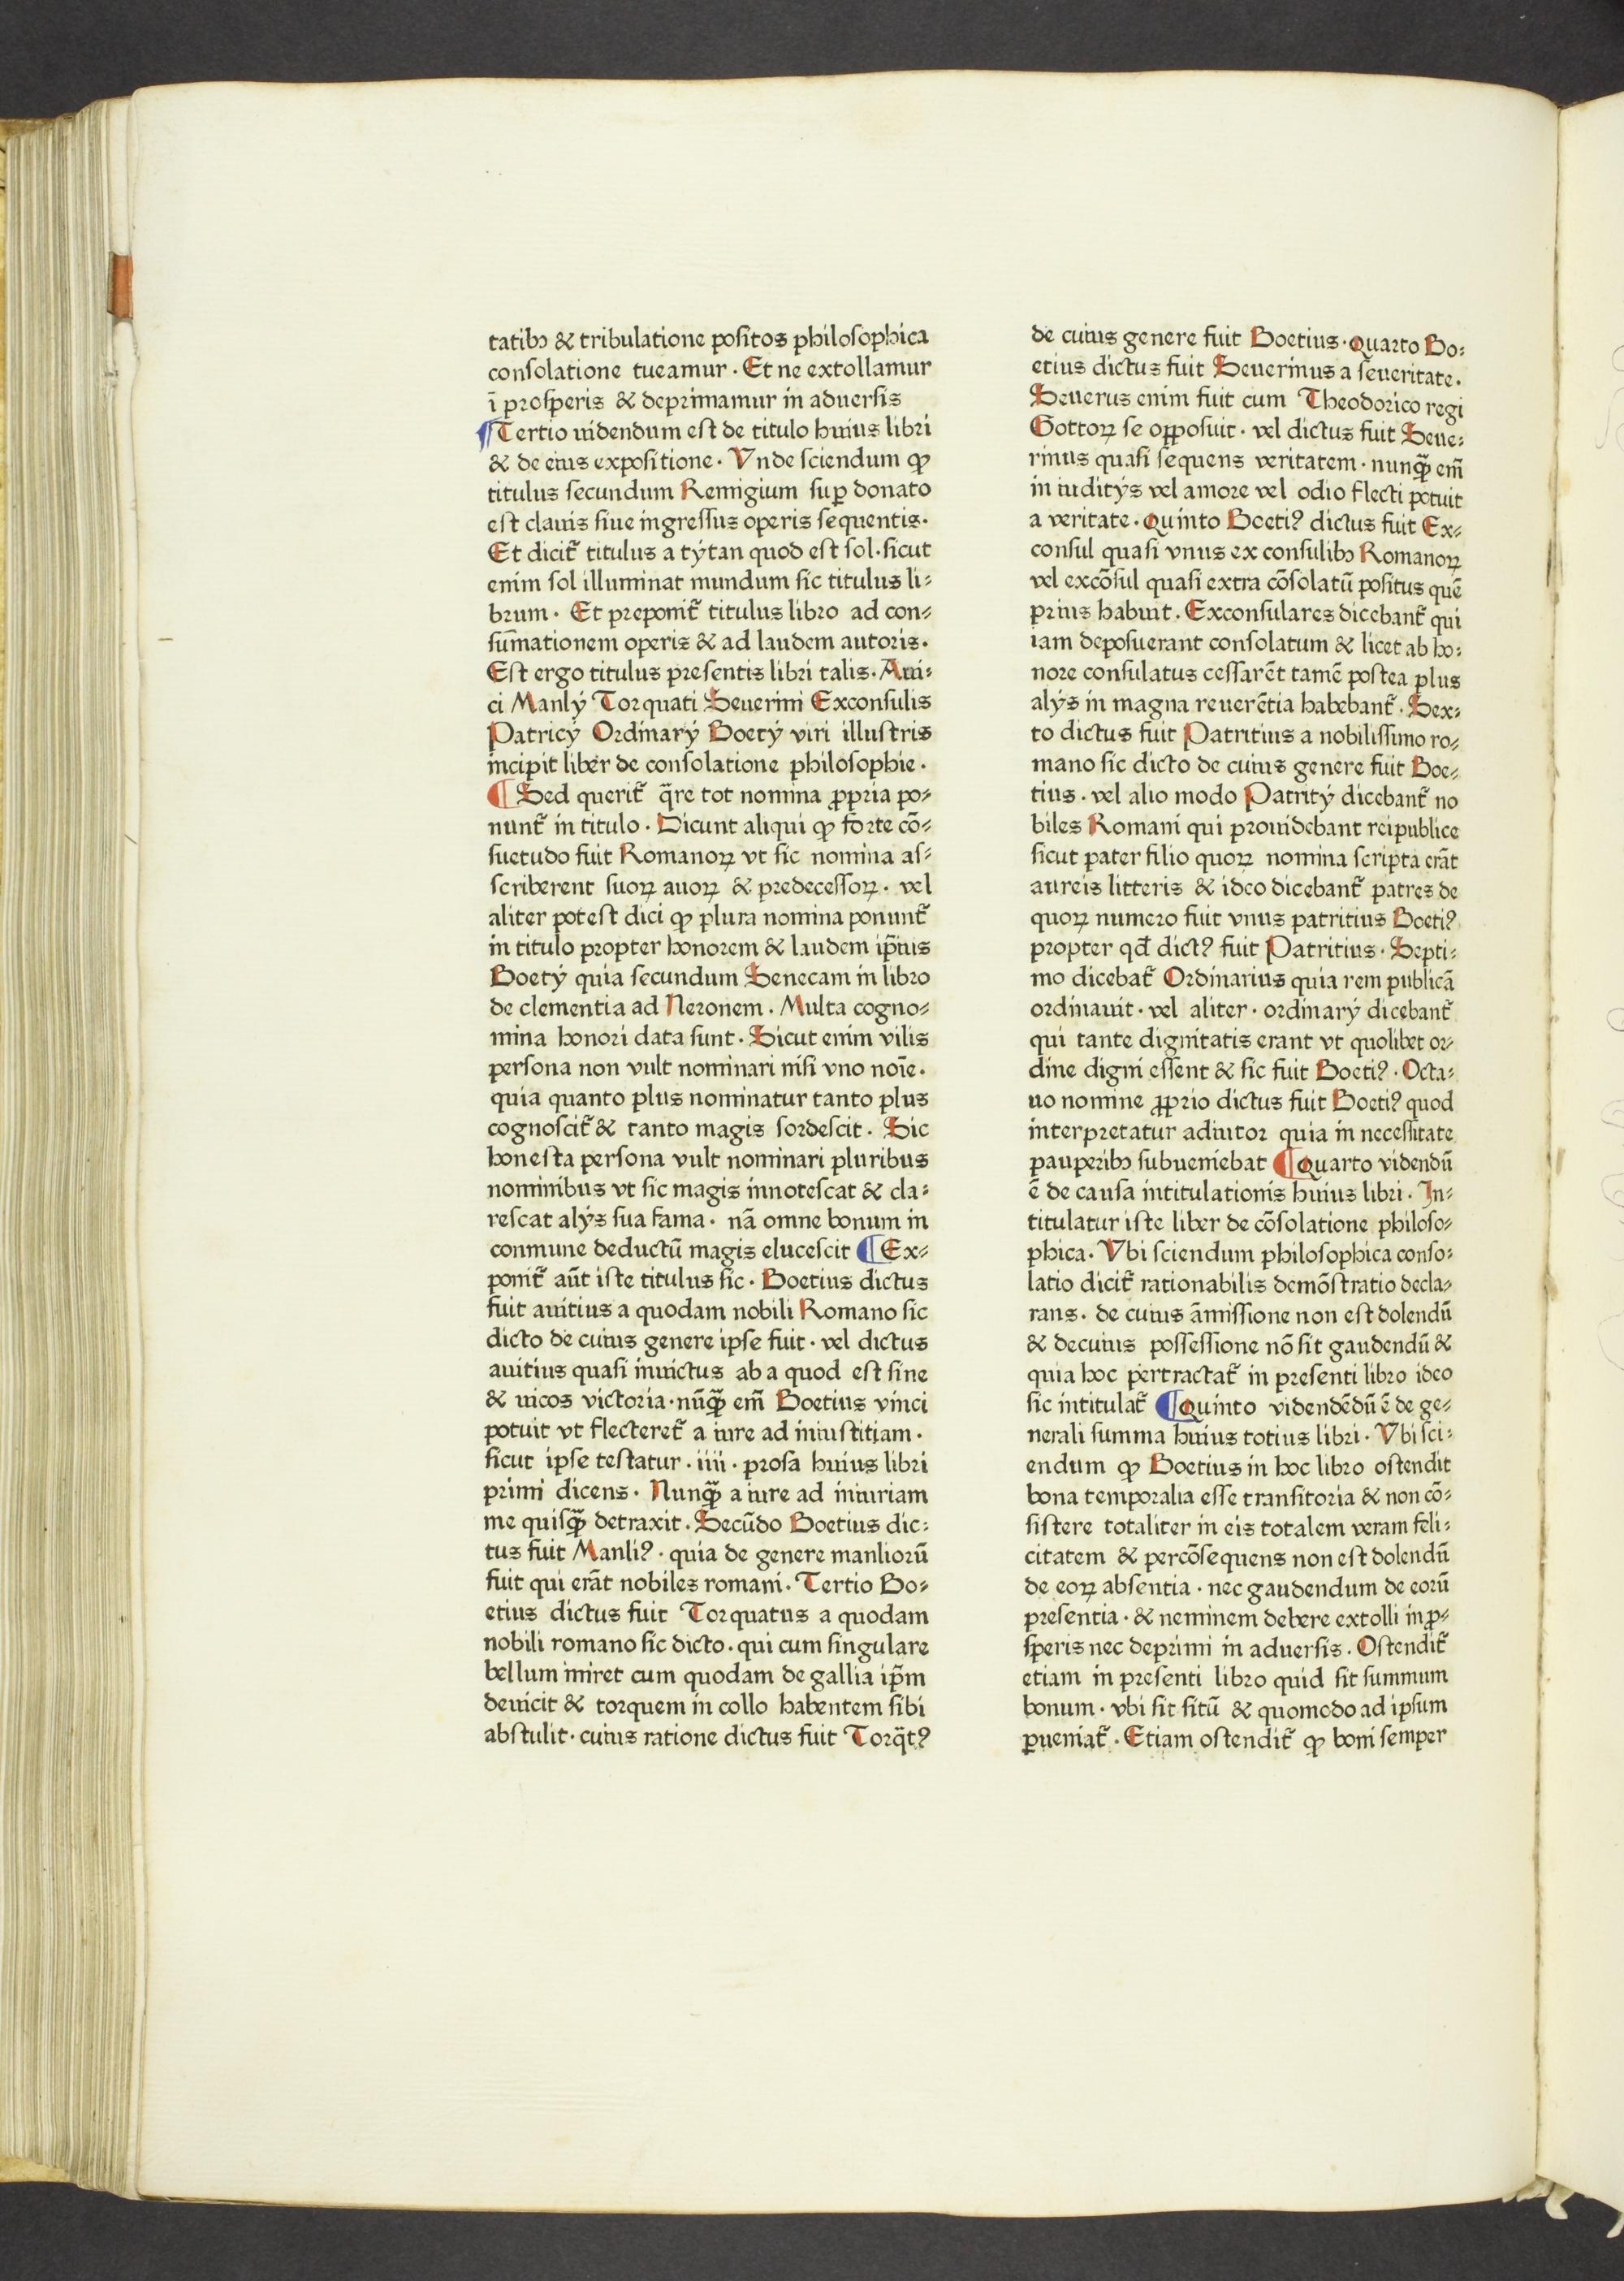 tatibꝫ & tribulatione positos philosophica
consolatione tueamur · Et ne extollamur
ī prosperis & deprimamur in aduersis
¶Tertio uidendum est de titulo huius libri
& de eius expositione · Vnde sciendum ꝙ
titulus secundum Remigium suꝑ donato
est clauis siue ingressus operis sequentis ·
Et dicit᷑ titulus a tytan quod est sol · sicut
enim sol illuminat mundum sic titulus li⸗
brum · Et preponit᷑ titulus libro ad con⸗
sum̄ationem operis & ad laudem autoris ·
Est ergo titulus presentis libri talis · Aui⸗
ci Manlÿ Torquati Seuerini Exconsulis
Patricÿ Ordinarÿ Boecÿ viri illustris
incipit liber de consolatione philosophie ·
¶ Sed querit᷑ q̄re tot nomina ꝓpria po⸗
nunt᷑ in titulo · Dicunt aliqui ꝙ forte cō⸗
suetudo fuit Romanoꝝ vt sic nomina as⸗
scriberent suoꝝ auoꝝ & predecessoꝝ · vel
aliter potest dici ꝙ plura nomina ponunt᷑
in titulo propter honorem & laudem ip̄ius
Boetÿ quia secundum Senecam in libro
de clementia ad Neronem · Multa cogno⸗
mina honori data sunt · Sicut enim vilis
persona non vult nominari nisi vno noīe ·
quia quanto plus nominatur tanto plus
cognoscit᷑ & tanto magis sordescit · Sic
honesta persona vult nominari pluribus
nominibus vt sic magis innotescat & cla⸗
rescat alÿs sua fama · nā omne bonum in
conmune deductū magis elucescit ¶ Ex⸗
ponit᷑ aūt iste titulus sic · Boetius dictus
fuit auitius a quodam nobili Romano sic
dicto de cuius genere ipse fuit · vel dictus
auitius quasi inuictus ab a quod est sine
& uicos victoria · nūꝙ̄ em̄ Boetius vinci
potuit vt flecteret᷑ a iure ad iniustitiam ·
sicut ipse testatur · iiii · prosa huius libri
primi dicens · Nunꝙ̄ a iure ad iniuriam
me quisꝙ̄ detraxit · Secūdo Boetius dic⸗
tus fuit Manliꝰ · quia de genere manliorū
fuit qui erāt nobiles romani · Tertio Bo⸗
etius dictus fuit Torquatus a quodam
nobili romano sic dicto · qui cum singulare
bellum iniret cum quodam de gallia ip̄m
deuicit & torquem in collo habentem sibi
abstulit · cuius ratione dictus fuit Torq̄tꝰ
de cuius genere fuit Boetius · Quarto Bo⸗
etius dictus fuit Seuerinus a seueritate ·
Seuerus enim fuit cum Theodorico regi
Gottoꝝ se oꝑposuit · vel dictus fuit Seue⸗
rinus quasi sequens veritatem · nunꝙ̄ em̄
in iuditÿs vel amore vel odio flecti potuit
a veritate · Quinto Boetiꝰ dictus fuit Ex⸗
consul quasi vnus ex consulibꝫ Romanoꝝ
vel excōsul quasi extra cōsolatū positus quē
prius habuit · Exconsulares dicebant᷑ qui
iam deposuerant consolatum & licet ab ho⸗
nore consulatus cessarēt tamē postea plus
alÿs in magna reuerētia habebant᷑ · Sex⸗
to dictus fuit Patritius a nobilissimo ro⸗
mano sic dicto de cuius genere fuit Boe⸗
tius · vel alio modo Patritÿ dicebant᷑ no
biles Romani qui prouidebant reipublice
sicut pater filio quoꝝ nomina scripta erāt
aureis litteris & ideo dicebant᷑ patres de
quoꝝ numero fuit vnus patritius Boetiꝰ
propter qd̄ dictꝰ fuit Patritius · Septi⸗
mo dicebat᷑ Ordinarius quia rem publicā
ordinauit · vel aliter · ordinarÿ dicebant᷑
qui tante dignitatis erant vt quolibet or⸗
dine digni essent & sic fuit Boetiꝰ · Octa⸗
uo nomine ꝓprio dictus fuit Boetiꝰ quod
interpretatur adiutor quia in necessitate
pauperibꝫ subueniebat ¶Quarto videndū
ē de causa intitulationis huius libri · In⸗
titulatur iste liber de cōsolatione philoso⸗
phica · Vbi sciendum philosophica conso⸗
latio dicit᷑ rationabilis demōstratio decla⸗
rans · de cuius āmissione non est dolendū
& decuius possessione nō sit gaudendū &
quia hoc pertractat᷑ in presenti libro ideo
sic intitulat᷑ ¶Quinto videndēdū ē de ge⸗
nerali summa huius totius libri · Vbi sci⸗
endum ꝙ Boetius in hoc libro ostendit
bona temporalia esse transitoria & non cō⸗
sistere totaliter in eis totalem veram feli⸗
citatem & percōsequens non est dolendū
de eoꝝ absentia · nec gaudendum de eorū
presentia · & neminem debere extolli in ꝓ⸗
speris nec deprimi in aduersis · Ostendit᷑
etiam in presenti libro quid sit summum
bonum · vbi sit sitū & quomodo ad ipsum
ꝑueniat᷑ · Etiam ostendit᷑ ꝙ boni semper